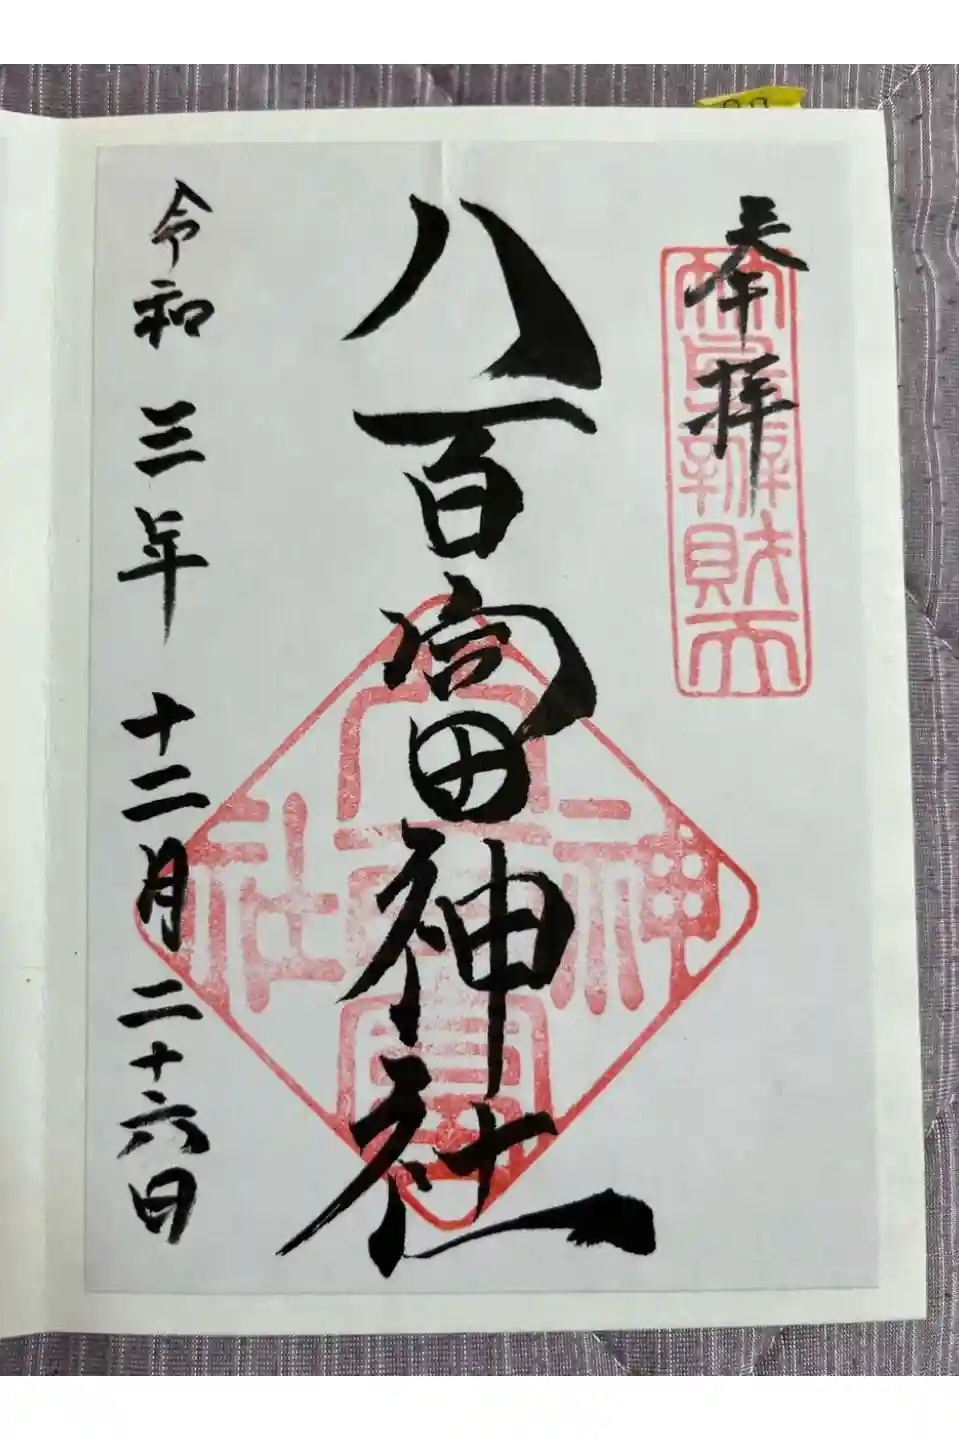 奉拝
八百富神社
令和三年十二月二十六日